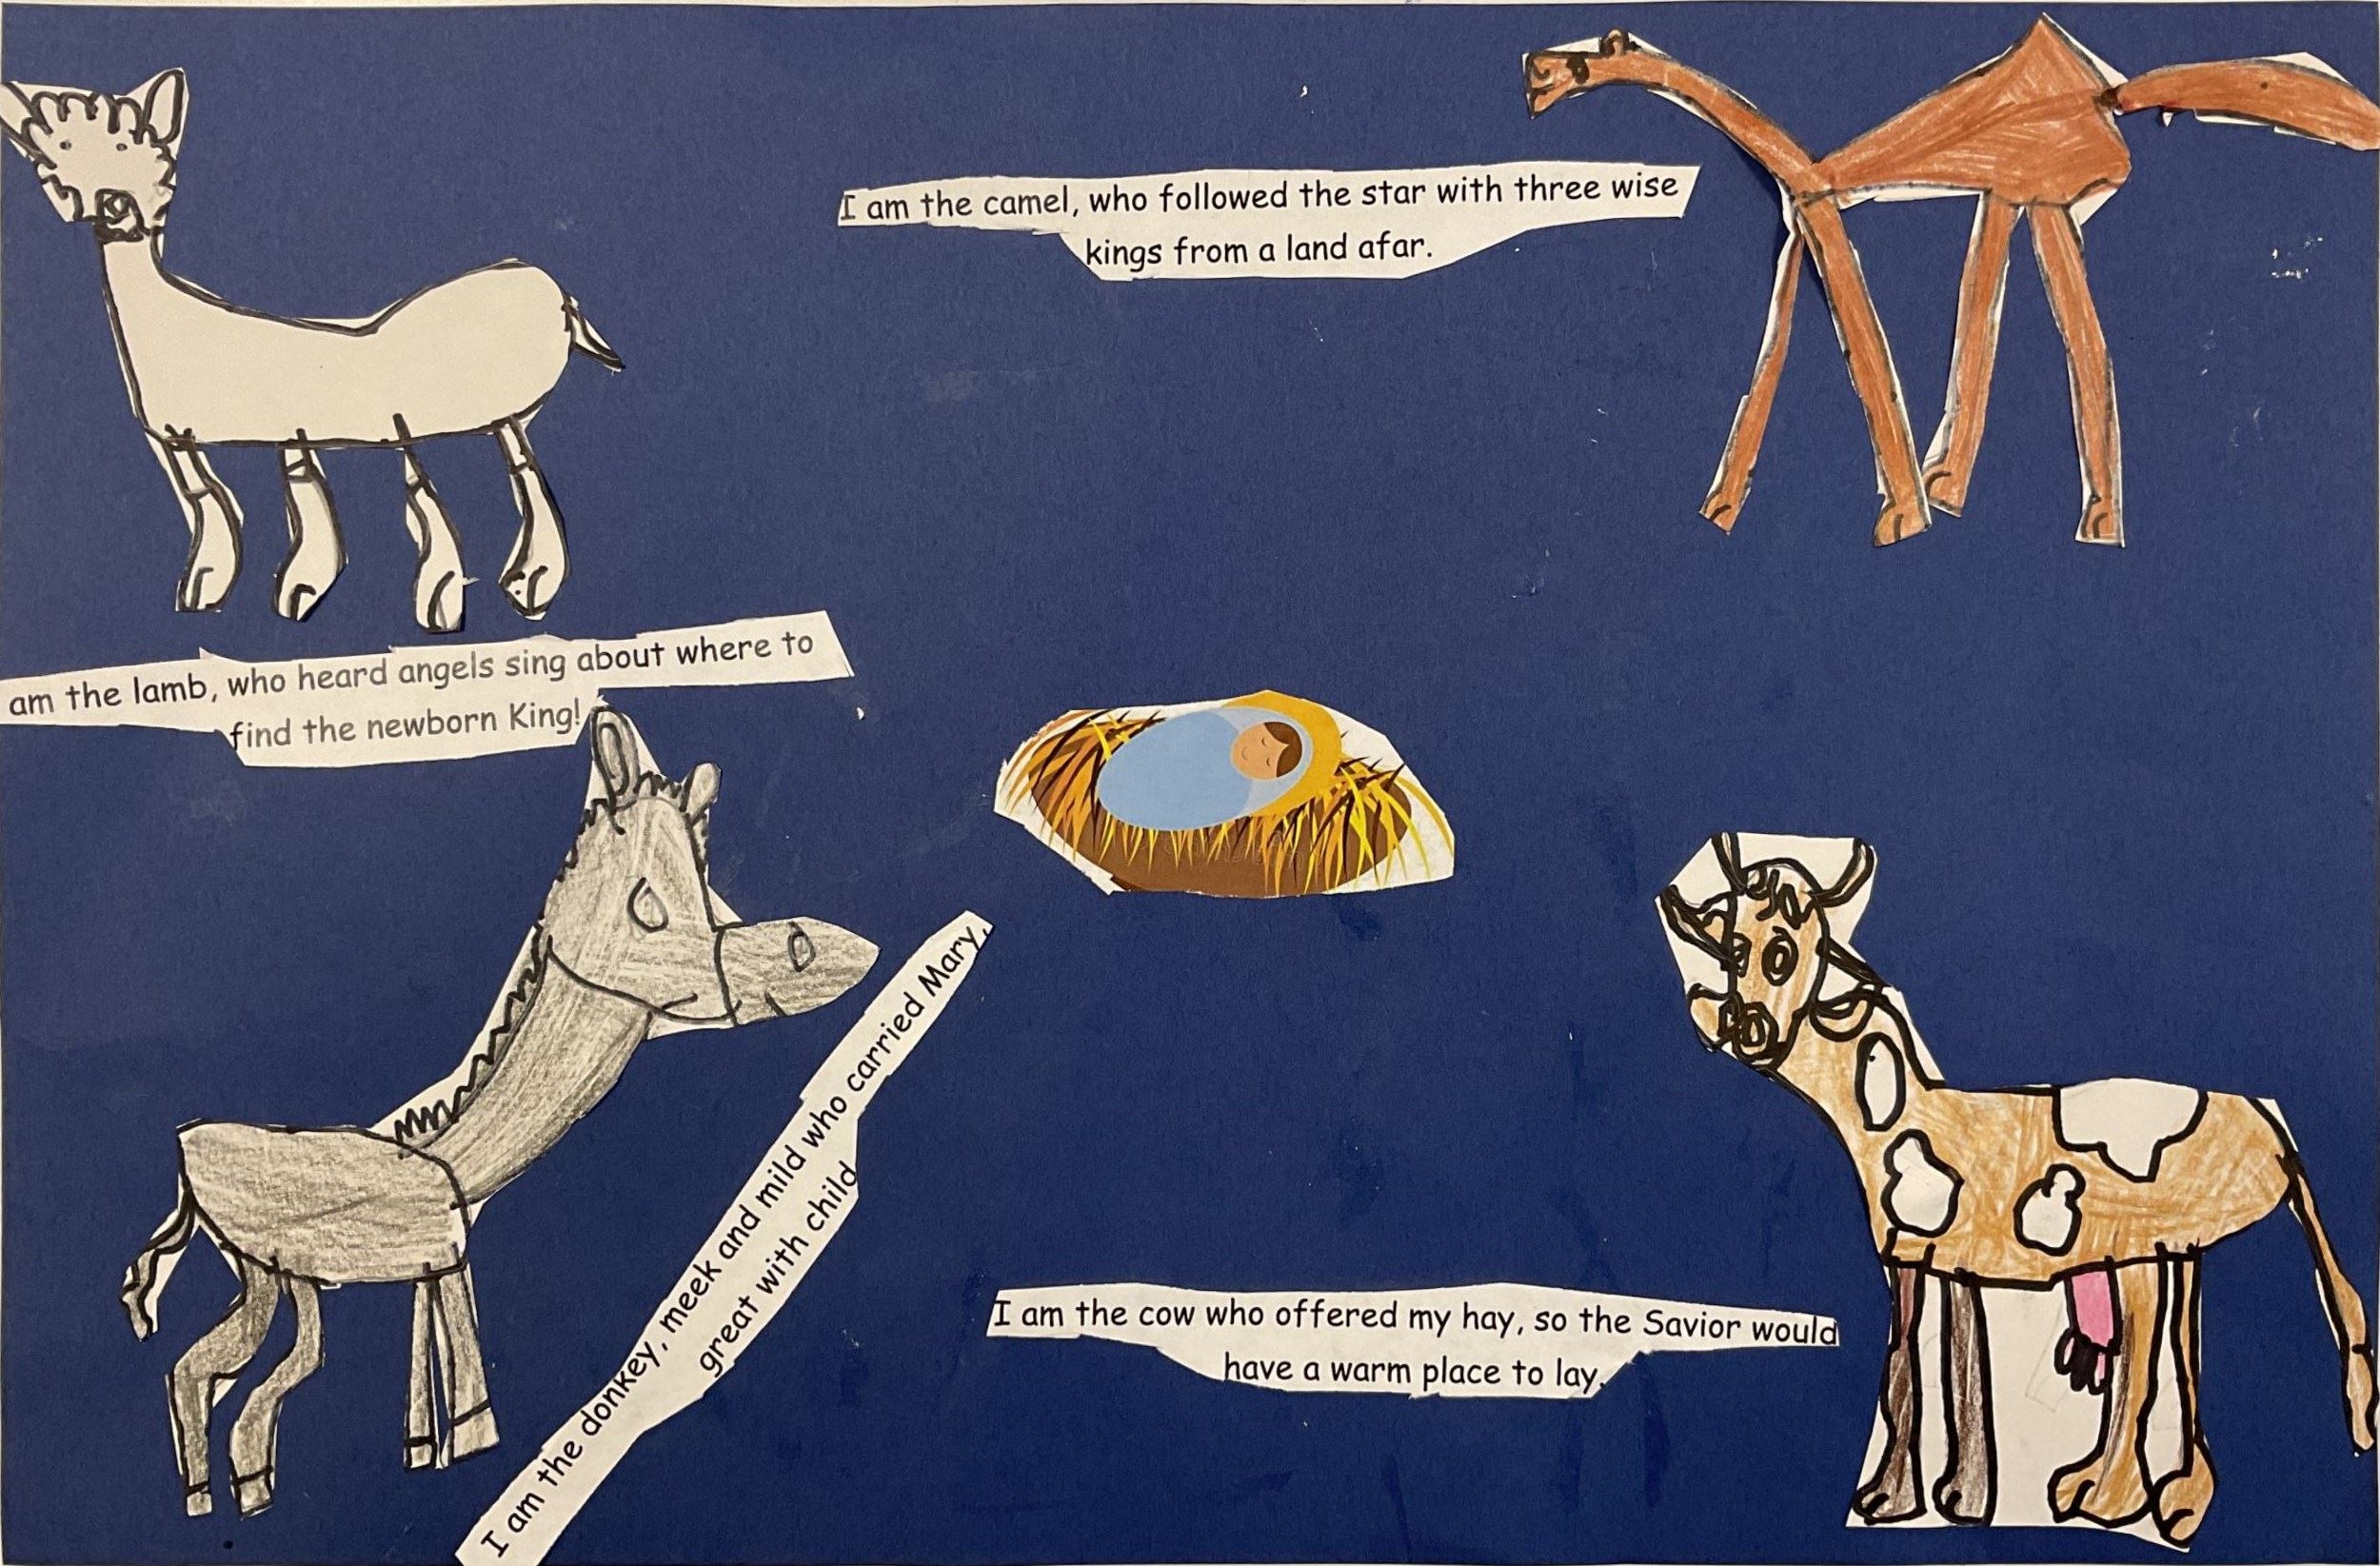 I am the camel, who followed the star with three wise
kings from a land afar.
am the lamb, who heard angels sing about where to
find the newborn King!
I am the donkey, meek and mild who carried Mary,
great with child
I am the cow who offered my hay, so the Savior would
have a warm place to lay.